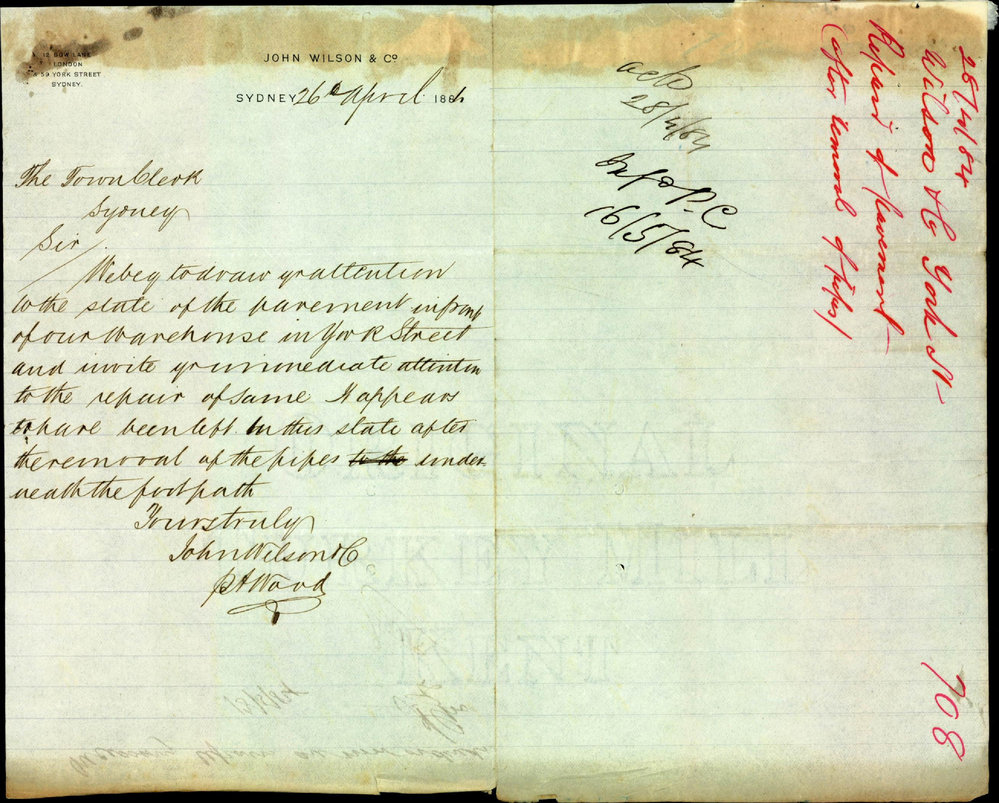 12 BOW LANE
LONDON
& 59 YORK STREET
SYDNEY.
JOHN WILSON & Co
SYDNEY 26th April 1884
The Town Clerk
Sydney
Sir/
We beg to draw yr attention
to the state of the pavement in front
of our Warehouse in York Street
and invite yr immediate attention
to the repair of same It appears
to have been left in this state after
the removal of the pipes to the under
neath the footpath
Yours truly
John Wilson & C
Wood
ackd
28/4/84
Info P.C
16/5/84
28/4/84
Wilson & C York St
Repair of Pavement
(after removal of pipes)
708